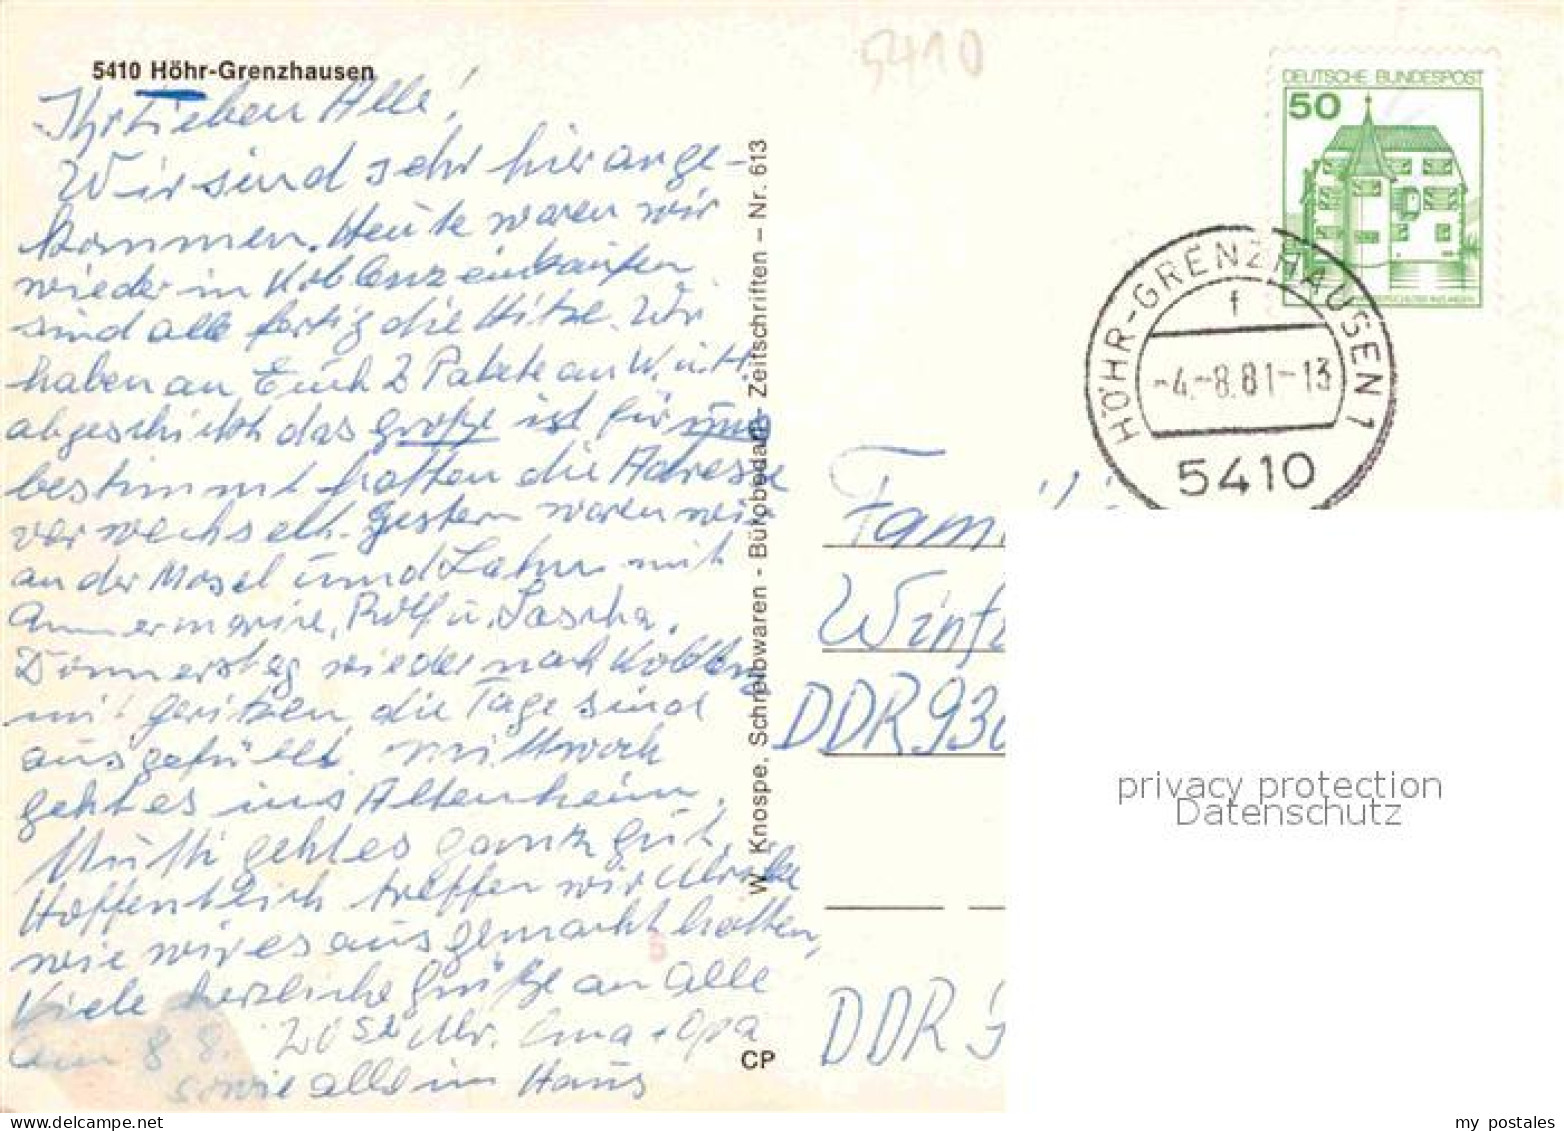 5410 Höhr-Grenzhausen
5410
Ihr Lieben Alle!
Wir sind sehr hier ange-
kommen. Heute waren wir
wieder in Koblenz einkaufen
sind alle fertig die Hitze. Wir
haben an Euch 2 Pakete an
abgeschickt das große ist für uns
bestimmt hatten die Adresse
verwechselt. Gestern waren wir
an der Mosel und Lahn mit
Annermarie, Rolf u. Sascha.
Donnerstag wieder nach Koblenz
mit die Tage sind
ausgefüllt mittwoch
geht es ins Altenheim.
Mutti geht es ganz gut.
Hoffentlich treffen wir Ulrike
wie wir es ausgemacht hatten,
Viele herzliche Grüße an alle
am 8.8. 20 52 Uhr. Oma + Opa
sowie alle im Haus
W. Knospe, Schreibwaren - Bürobedarf - Zeitschriften – Nr. 613
CP
DEUTSCHE BUNDESPOST
50
HÖHR-GRENZHAUSEN 1
f
-4.-8.81-13
5410
Fam
Wint
DDR 930
DDR
privacy protection
Datenschutz
my postales